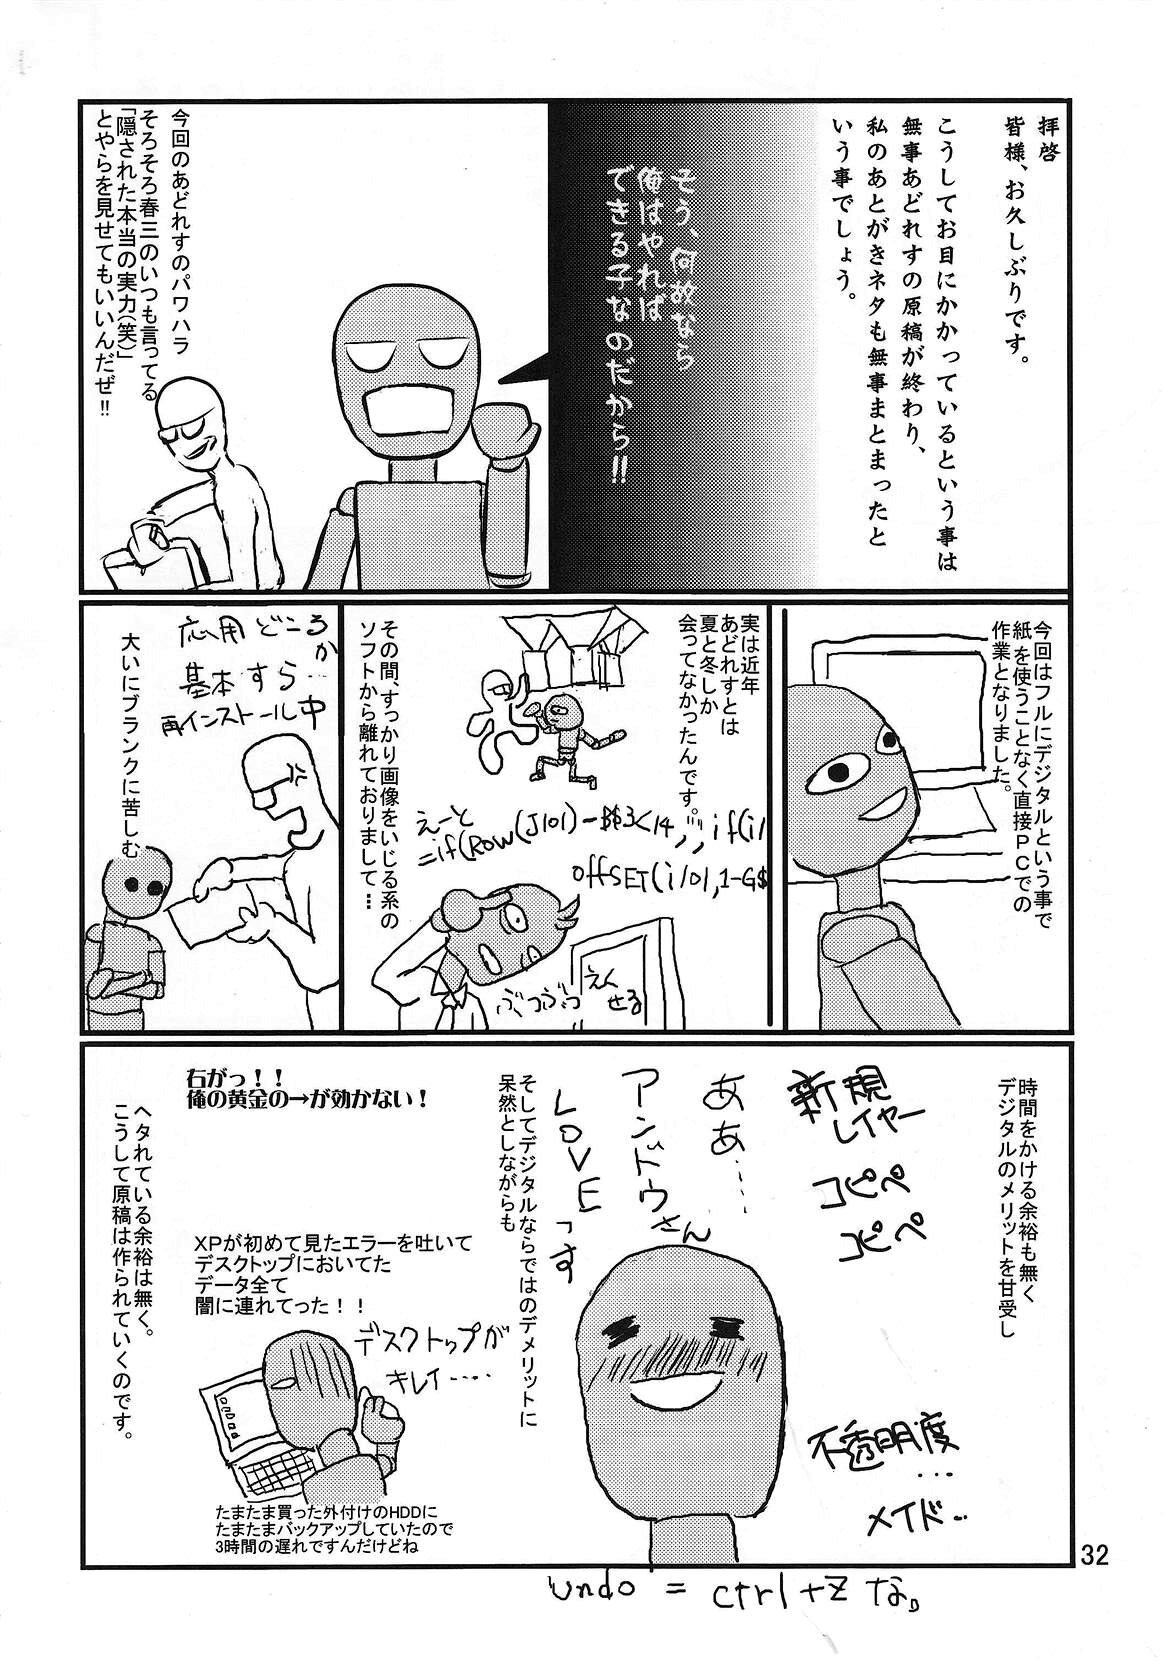 拝啓
皆様、お久しぶりです。
こうしてお目にかかっているという事は
無事あどれすの原稿が終わり、
私のあとがきネタも無事まとまったと
いう事でしょう。
そう、何故なら
俺はやれば
できる子なのだから!!
今回のあどれすのパワハラ
そろそろ春三のいつも言ってる
「隠された本当の実力(笑)」
とやらを見せてもいいんだぜ!!
今回はフルにデジタルという事で
紙を使うことなく直接PCでの
作業となりました。
実は近年
あどれすとは
夏と冬しか
会ってなかったんです。
えーと
=if(ROW(J101)-B$3<14,",if(i1
OffSET(i101,1-G$
ぶつぶつ
えく
せる
その間、すっかり画像をいじる系の
ソフトから離れておりまして…
応用どころか
基本すら…
再インストール中
大いにブランクに苦しむ
時間をかける余裕も無く
デジタルのメリットを甘受し
新規
レイヤー
コピペ
コピペ
不透明度
…
メイド…
ああ…
アンドウさん
LOVEっす
そしてデジタルならではのデメリットに
呆然としながらも
右がっ!!
俺の黄金の→が効かない!
XPが初めて見たエラーを吐いて
デスクトップにおいてた
データ全て
闇に連れてった!!
デスクトップが
キレイ……
たまたま買った外付けのHDDに
たまたまバックアップしていたので
3時間の遅れですんだけどね
ヘタれている余裕は無く。
こうして原稿は作られていくのです。
undo = ctrl+Z な。
32